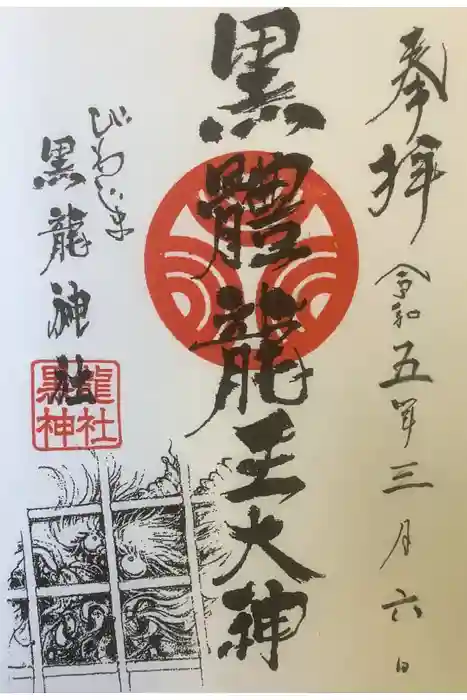 奉拝
令和五年三月六日
黒體龍王大神
びわじま
黒龍神社
黒龍神社